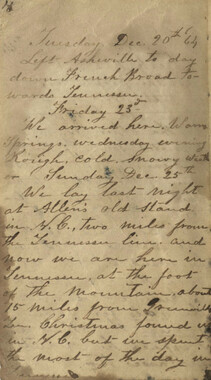 Tuesday Dec 20th 64
Left Asheville to day
down French Broad to-
wards Tennessee.
Friday 23d
We arrived here, Warm
Springs, wednesday evening
Rough, cold, snowy weath
er Sunday Dec. 25th
We lay last night
at Allen's old Stand
in N.C. two miles from
the Tennessee line. and
now we are here in
Tennessee, at the foot
of the Mountain, about
15 miles from
Christmas found us
in N.C. but we spent
the most of the day in